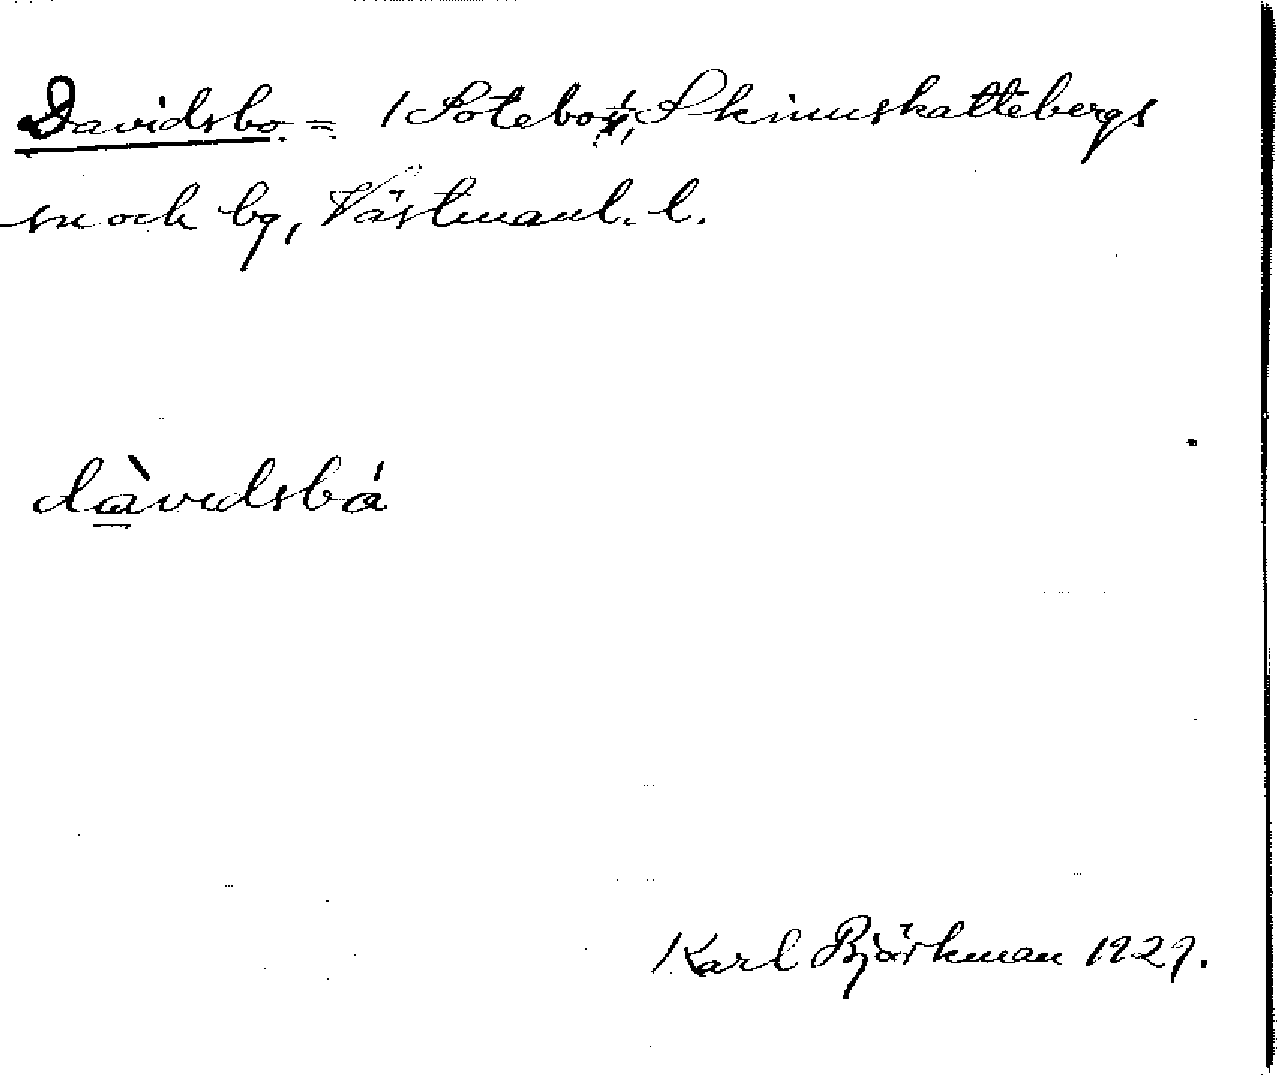 Davidsbo = 1 Sotebo, Skinnskattebergs
sn och bg, Västmanl. l.
dàvidsbå
Karl Björkman 1929.